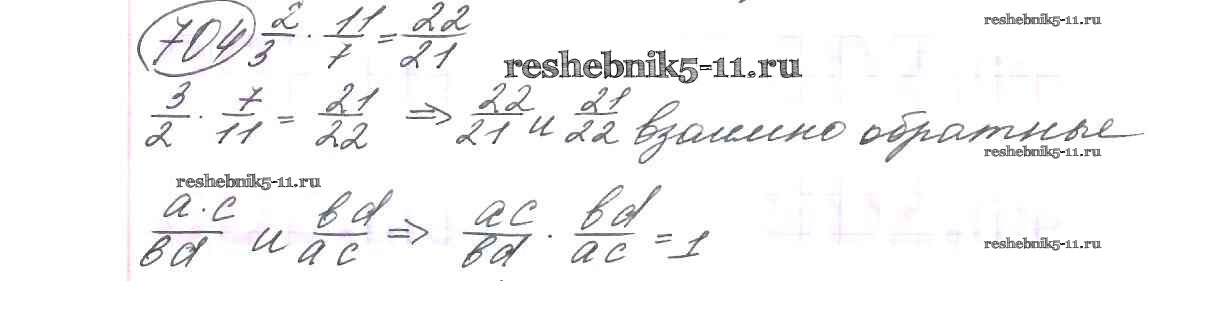 704 2/3 · 11/7 = 22/21
reshebnik5-11.ru
reshebnik5-11.ru
3/2 · 7/11 = 21/22 ⇒ 22/21 и 21/22 взаимно обратные
reshebnik5-11.ru
reshebnik5-11.ru
a·c/bd и bd/ac ⇒ ac/bd · bd/ac = 1
reshebnik5-11.ru